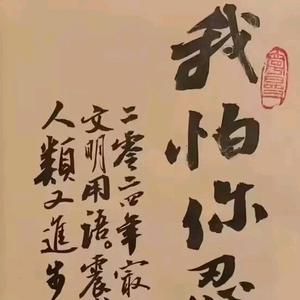 我怕你忍
二零二四年最
文明用语。震
人類又進步